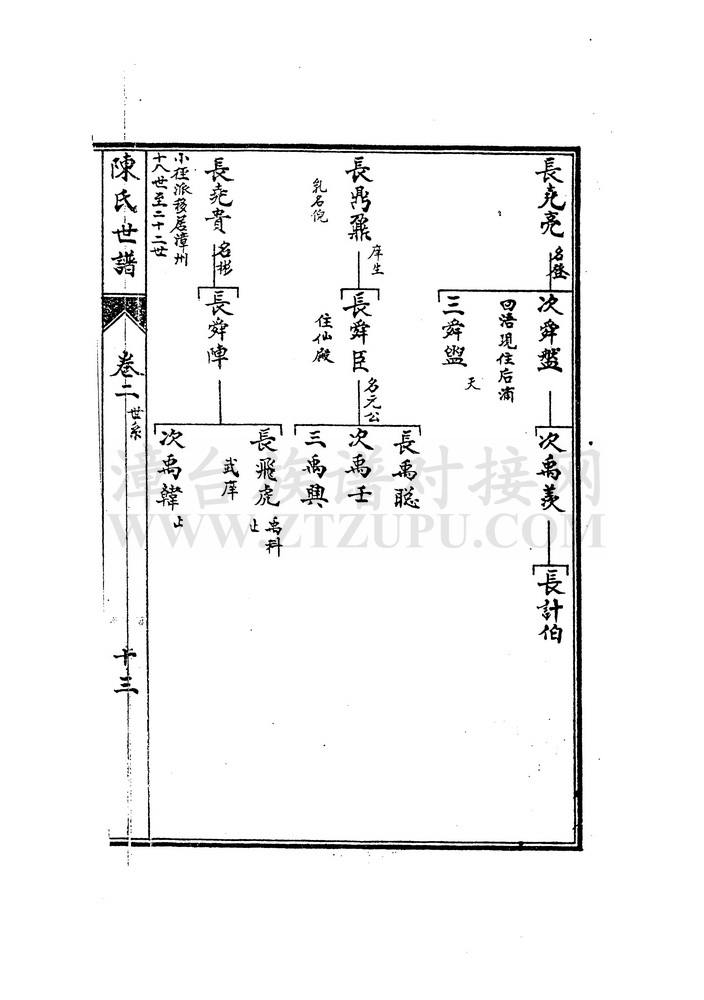 長堯亮
名登
次舜盤
回浯現住后浦
三舜盥
天
次禹羨
長計伯
長鼎鼐
庠生
乳名倪
長舜臣
名元公
住仙殿
長禹聡
次禹壬
三禹興
長堯貴
名彬
長舜陣
長飛虎
禹科
止
武庠
次禹韓
止
小徑派移居漳州
十八世至二十二世
陳氏世譜
卷二
世系
十三
漳台族谱对接网
WWW.ZTZUPU.COM